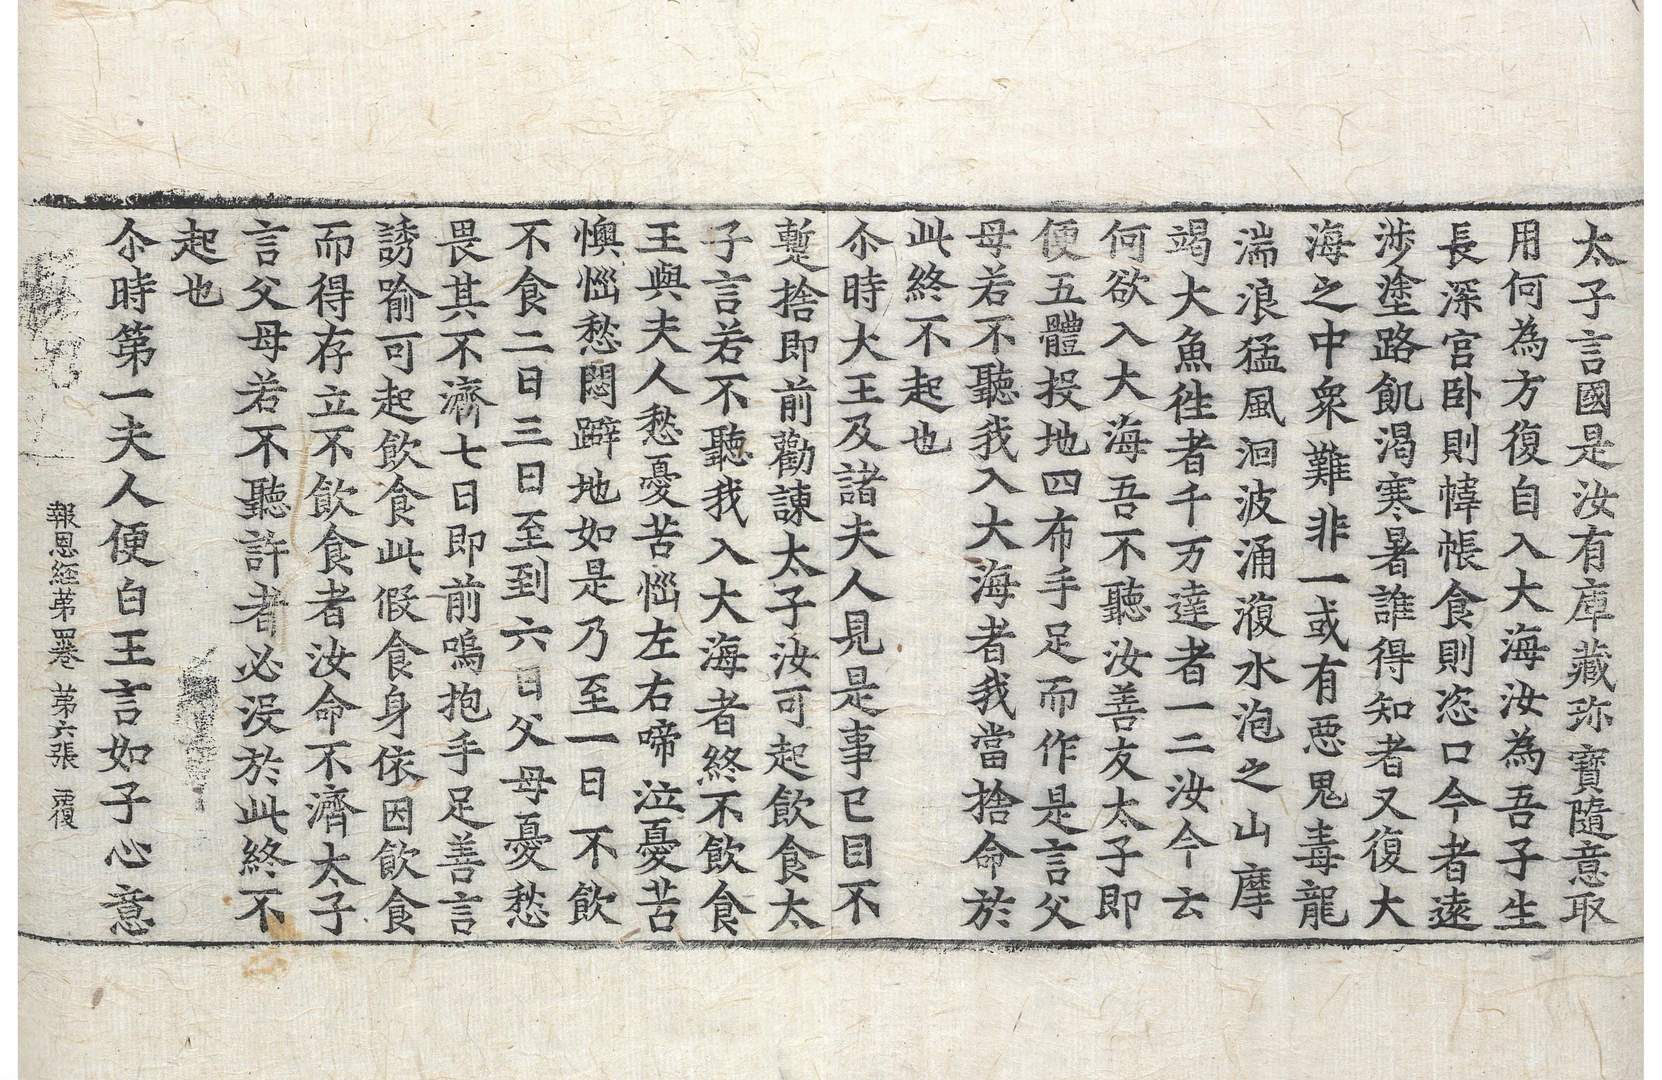 太子言國是汝有庫藏珎寶隨意取
用何為方復自入大海汝為吾子生
長深宮卧則幃帳食則恣口今者遠
涉塗路飢渴寒暑誰得知者又復大
海之中衆難非一或有惡鬼毒龍
湍浪猛風洄波涌澓水泡之山摩
竭大魚徃者千万達者一二汝今云
何欲入大海吾不聽汝善友太子即
便五體投地四布手足而作是言父
母若不聽我入大海者我當捨命於
此終不起也
尒時大王及諸夫人見是事已目不
蹔捨即前勸諫太子汝可起飲食太
子言若不聽我入大海者終不飲食
王與夫人愁憂苦惱左右啼泣憂苦
懊惱愁悶躃地如是乃至一日不飲
不食二日三日至到六日父母憂愁
畏其不濟七日即前嗚抱手足善言
誘喻可起飲食此假食身依因飲食
而得存立不飲食者汝命不濟太子
言父母若不聽許者必没於此終不
起也
尒時第一夫人便白王言如子心意
報恩經第四卷 第六張 覆